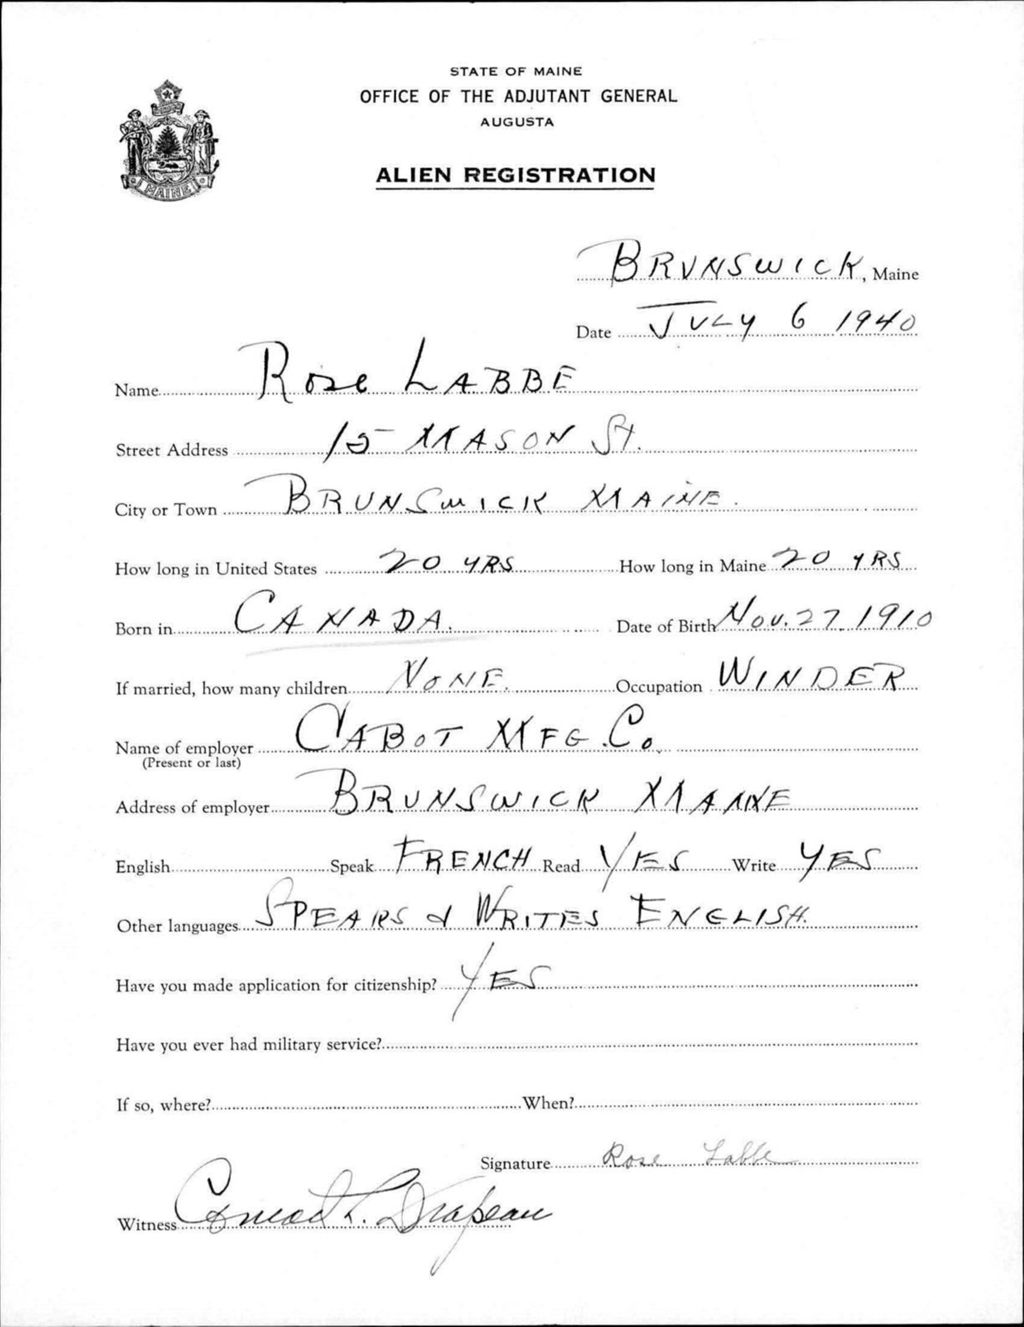 STATE OF MAINE
OFFICE OF THE ADJUTANT GENERAL
AUGUSTA
ALIEN REGISTRATION
MAINE
BRUNSWICK, Maine
Date JULY 6 1940
Name Rose LABBE
Street Address 15 MASON St.
City or Town BRUNSWICK MAINE.
How long in United States 20 YRS How long in Maine 20 YRS
Born in CANADA. Date of Birth Nov. 27. 1910
If married, how many children NONE. Occupation WINDER
Name of employer CABOT MFG. Co.
(Present or last)
Address of employer BRUNSWICK MAINE
English Speak FRENCH Read YES Write YES
Other languages SPEAKS & WRITES ENGLISH.
Have you made application for citizenship? YES
Have you ever had military service?
If so, where? When?
Signature Rose Labbe
Witness Conrad L. Drapeau